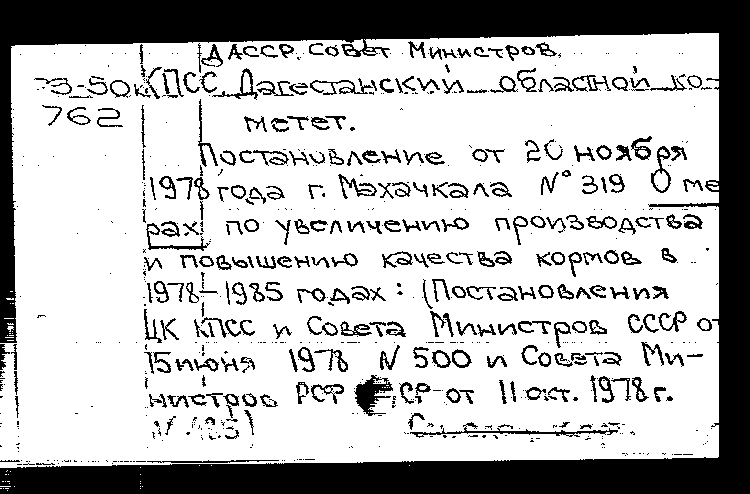 ДАССР. Совет Министров.
КПСС Дагестанский областной ко-
762
метет.
Постановление от 20 ноября
1978 года г. Махачкала № 319 О ме
рах по увеличению производства
и повышению качества кормов в
1978-1985 годах: (Постановления
ЦК КПСС и Совета Министров СССР от
15 июня 1978 N 500 и Совета Ми-
нистров РСФ СР от 11 окт. 1978 г.